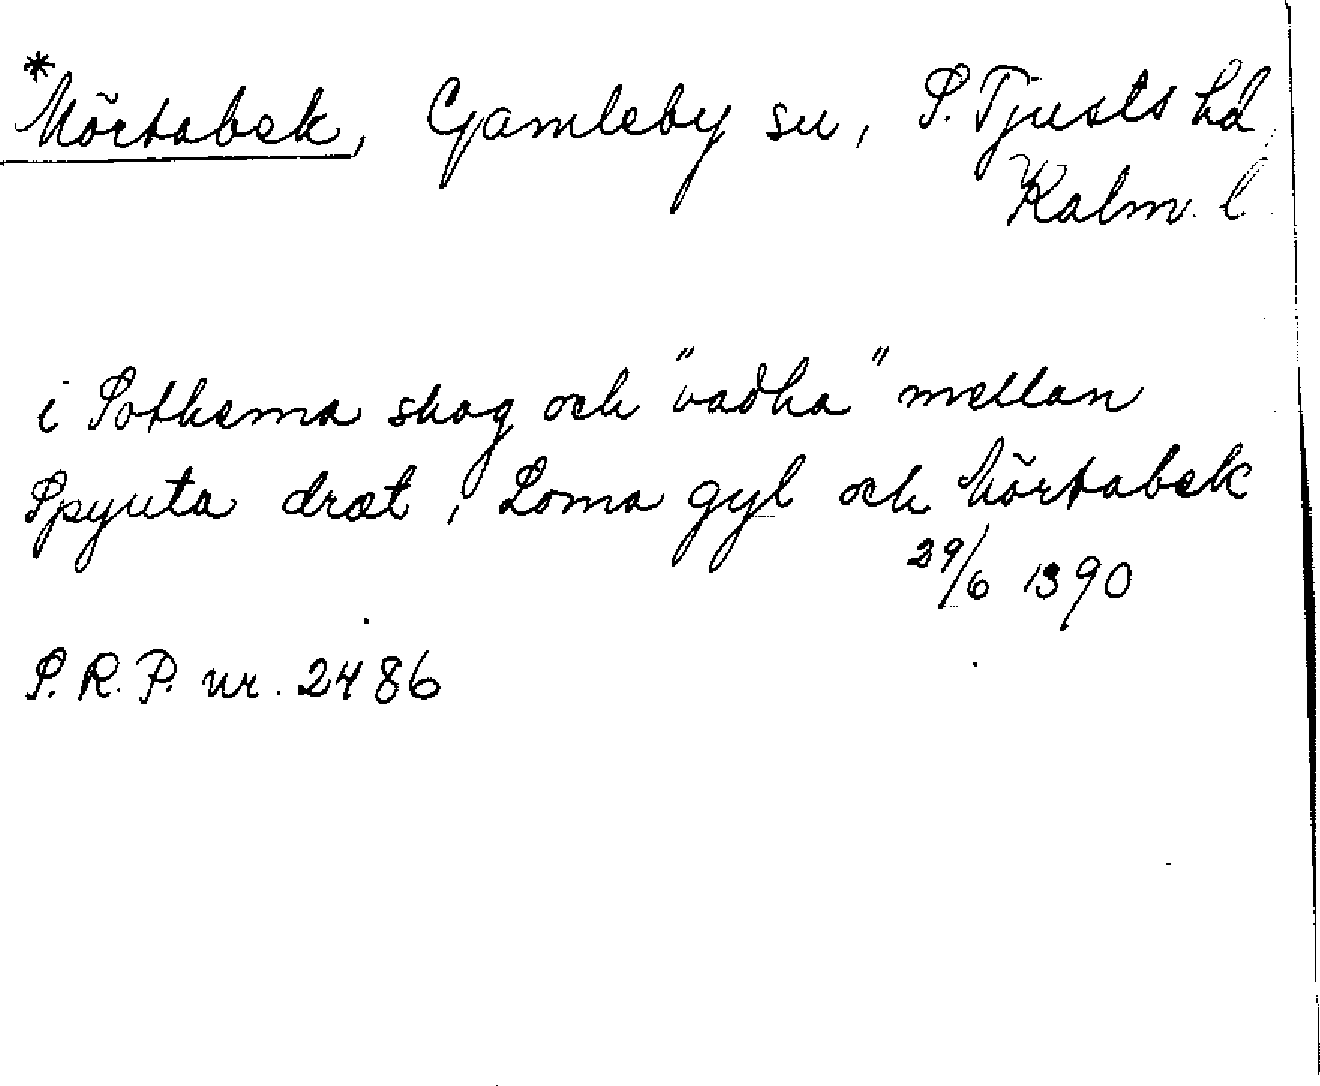 *Mörtabek, Gamleby sn, S. Tjusts hd,
Kalm. l.
i Sothema skog och "vadha" mellan
Spyuta dræt, Loma gyl och Mörtabek
29/6 1390
S. R. P. nr. 2486